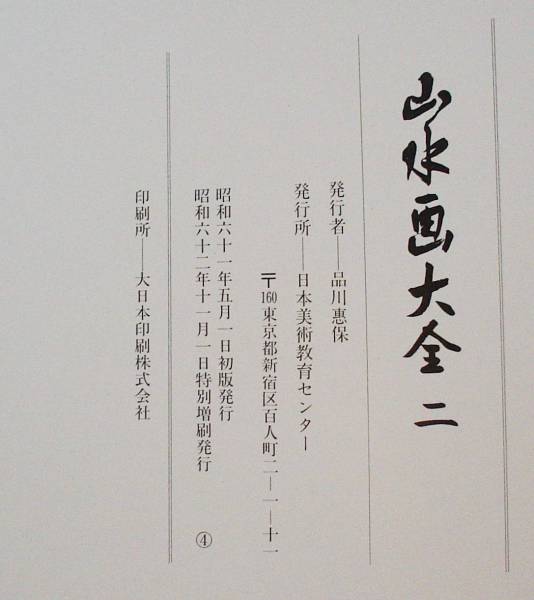 山水画大全 二
発行者──品川惠保
発行所──日本美術教育センター
〒160東京都新宿区百人町二─一─十一
昭和六十一年五月一日初版発行
昭和六十二年十一月一日特別増刷発行 ④
印刷所──大日本印刷株式会社